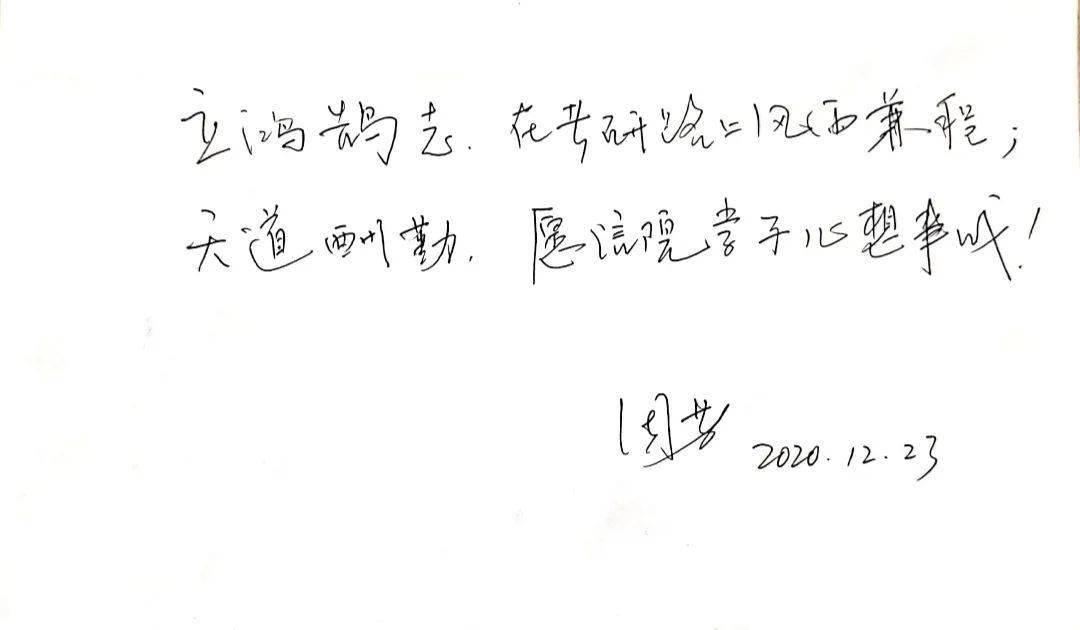 立鸿鹄志.在考研路上风雨兼程；
天道酬勤.愿信院学子心想事成！
周 2020.12.23